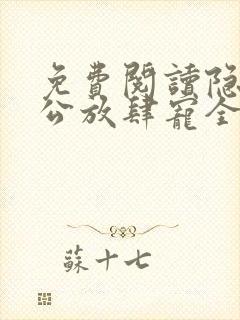 免費閱讀隐
公放肆寵全
蘇十七